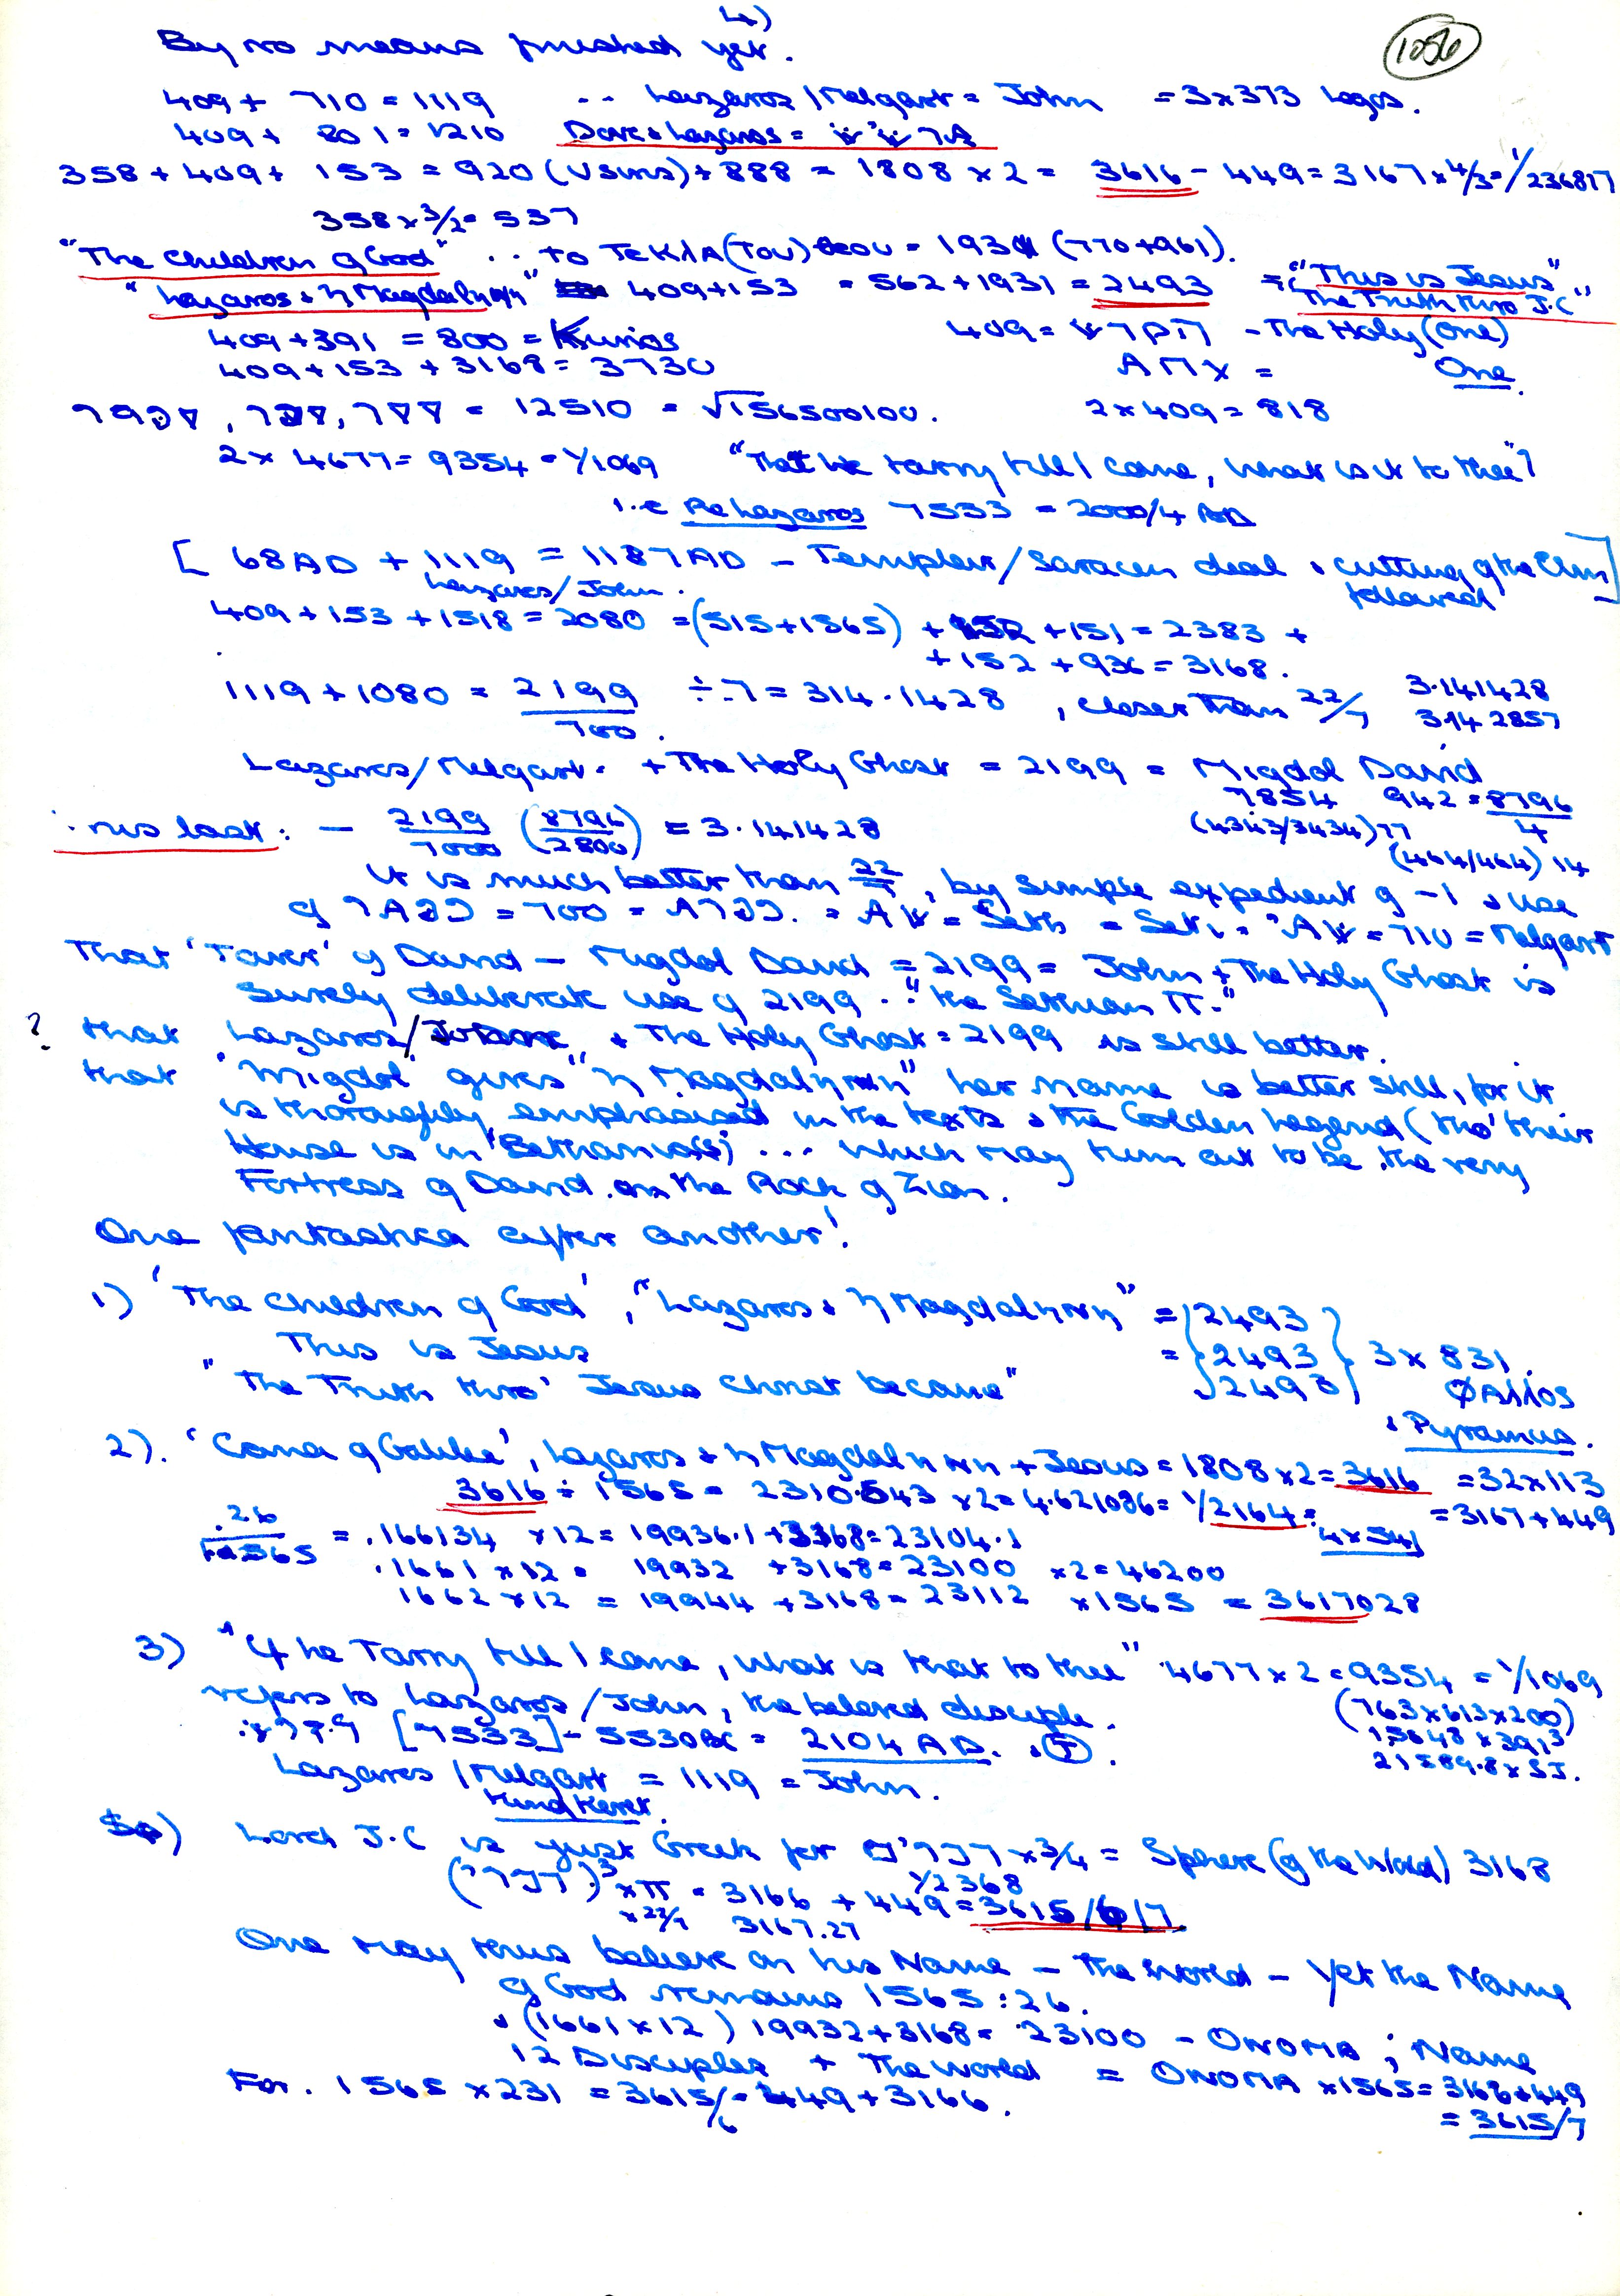 4)
1056
By no means finished yet.
409 + 710 = 1119 ∴ Lazaros/Melqart = John = 3x373 Logos.
409 + 801 = 1210 Dove & Lazaros =
358 + 409 + 153 = 920 + 888 = 1808 x 2 = 3616 - 449 = 3167 x 4/3 = 1/236817
358 x 3/2 = 537
"The Children of God" ∴ To TEKNA (TOU) θEOU = 1931 (770+961).
"Lazaros & η Magdalηνη" 409+153 = 562 + 1931 = 2493 = "This is Jesus"
"The Truth thro J.C"
409 + 391 = 800 = Kurios 409 = - The Holy (One)
409 + 153 + 3168 = 3730 = One.
= 12510 = √156500100. 2 x 409 = 818
2 x 4677 = 9354 = 1/1069 "That he tarry till I come, what is it to thee"?
i.e Re Lazaros 7533 = 2000/4 AD
[ 68AD + 1119 = 1187AD - Templar/Saracen deal & cutting of the Elm followed ]
Lazaros/John.
409 + 153 + 1518 = 2080 = (515+1565) + 152 + 151 = 2383 +
+ 152 + 936 = 3168.
1119 + 1080 = 2199 ÷ 7 = 314.1428, closer than 22/7 3.141428
700. 3.142857
Lazaros/Melqart. + The Holy Ghost = 2199 = Migdol David
7854 942 = 8796
4
(4343/3434)77
(464/464) 14
- 2199/7000 (8796/2800) = 3.141428
It is much better than 22/7, by simple expedient of -1 & use
of = 700 = = = Seth = Seti = = 710 = Melqart
That 'Tower' of David - Migdol David = 2199 = John + The Holy Ghost is
surely deliberate use of 2199 ∴ "the Sethian π."
? that Lazaros/ + The Holy Ghost = 2199 is still better.
that "Migdol" gives "η Magdalηνη" her name is better still, for it
is thoroughly emphasised in the texts & the Golden Legend (tho' their
House is in 'Bethania(s)) ... which may turn out to be the very
Fortress of David on the Rock of Zion.
One fantastica after another!
1) 'The children of God', "Lazaros & η Magdalηνη" = 2493
This is Jesus = 2493 3 x 831.
"The Truth thro' Jesus Christ became" 2493 ΦAλλOS
& Pyramus.
2). 'Cana of Galilee', Lazaros & η Magdalηνη + Jesus = 1808 x 2 = 3616 = 32x113
3616 ÷ 1565 = 2310.543 x 2 = 4.621086 = 1/2164 = 4x541 = 3167+449
.26/1.565 = .166134 x 12 = 19936.1 + 3168 = 23104.1
.1661 x 12 = 19932 + 3168 = 23100 x 2 = 46200
1662 x 12 = 19944 + 3168 = 23112 x 1565 = 3617028
3) "If he Tarry till I come, what is that to thee" 4677 x 2 = 9354 = 1/1069
refers to Lazaros/John, the beloved disciple. (763x613x200)
[7533] - 5530BC = 2104 AD. 15648 x 391³
21589.8 x SJ.
Lazaros/Melqart = 1119 = John.
King Keret.
) Lord J.C is just Greek for x 3/4 = Sphere (of the World) 3168
1/2368
x π = 3166 + 449 = 3615/6/7.
x 22/7 3167.27
One may thus believe on his Name - the World - yet the Name
of God remains 1565 : 26.
& (1661 x 12) 19932 + 3168 = 23100 - ONOMA; Name
12 Disciples + The World = ONOMA x 1565 = 3166+449
For. 1565 x 231 = 3615/6 = 449 + 3166. = 3615/7